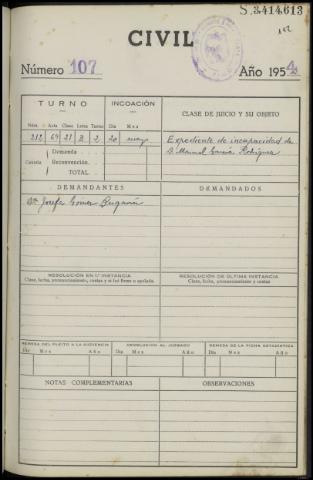 S.3414.613
112
CIVIL
Número 107 Año 1954
TURNO INCOACIÓN CLASE DE JUICIO Y SU OBJETO
Núm. Acta Clase Letra Turno Día Mes
212 64 21 B 2 20 mayo Expediente de incapacidad de
Demanda D. Manuel García Rodríguez
Cuantía Reconvención.
TOTAL.
DEMANDANTES DEMANDADOS
Dª Josefa Gómez
RESOLUCIÓN EN 1.ª INSTANCIA RESOLUCIÓN DE ÚLTIMA INSTANCIA
Clase, fecha, pronunciamiento, costas y si fué firme o apelada. Clase, fecha, pronunciamiento y costas
REMESA DEL PLEITO A LA AUDIENCIA DEVOLUCIÓN AL JUZGADO REMESA DE LA FICHA ESTADÍSTICA
Día Mes Año Día Mes Año Día Mes Año
NOTAS COMPLEMENTARIAS OBSERVACIONES